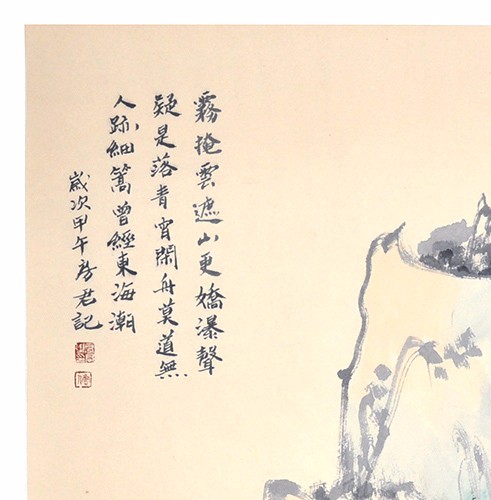 霧掩雲遮山更嬌瀑聲
疑是落青宵閑舟莫道無
人跡細篙曾經東海潮
歲次甲午房君記